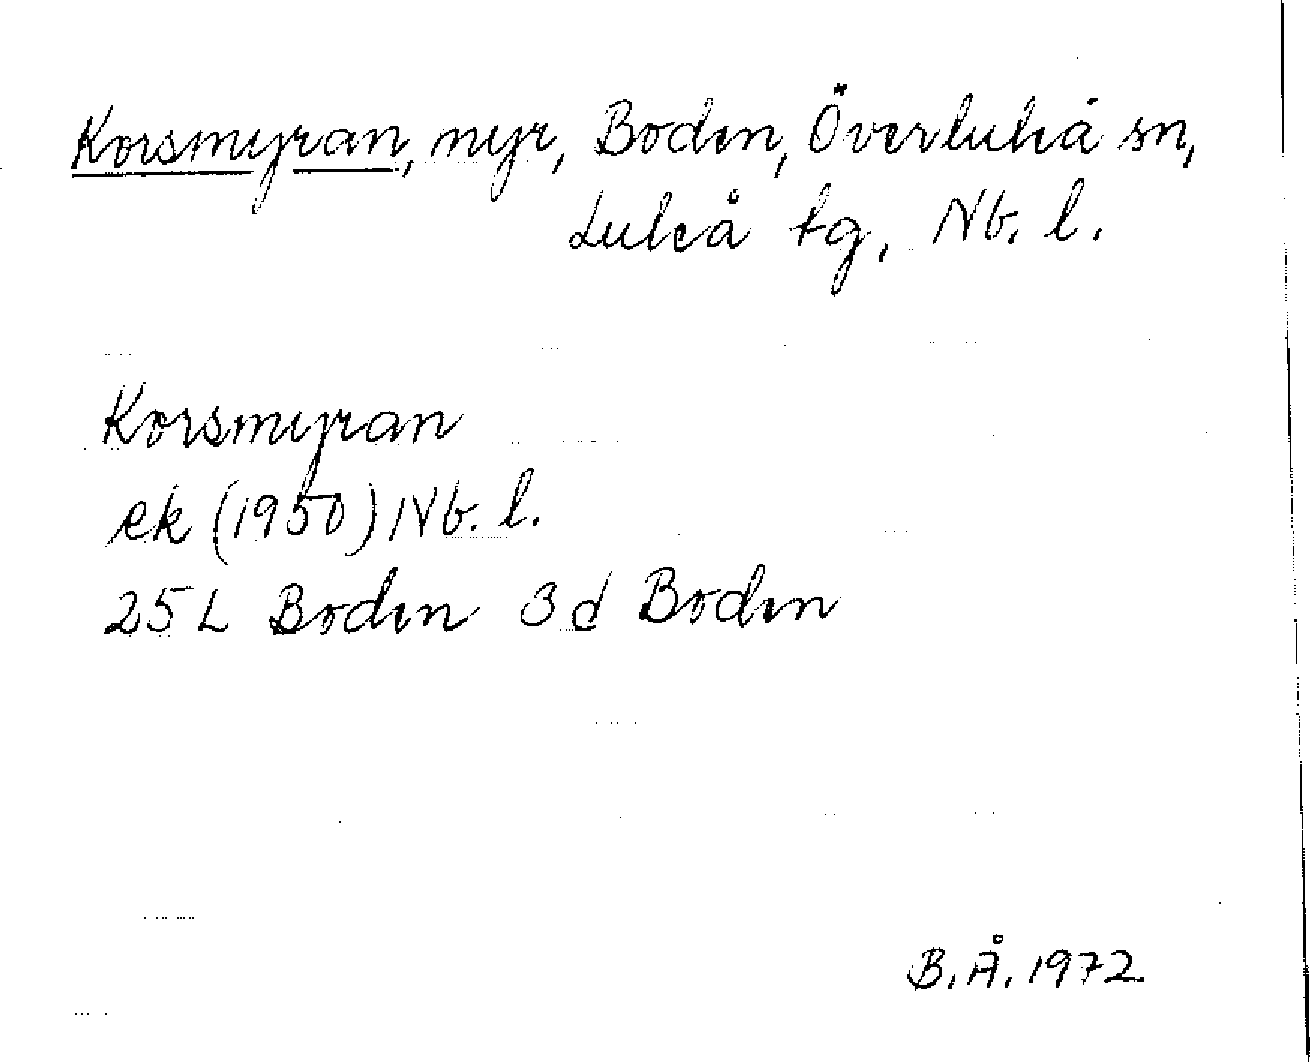 Korsmyran, myr, Boden, Överluleå sn,
Luleå tg, Nb. l.
Korsmyran
ek (1950) Nb. l.
25 L Boden 3 d Boden
B. Å. 1972